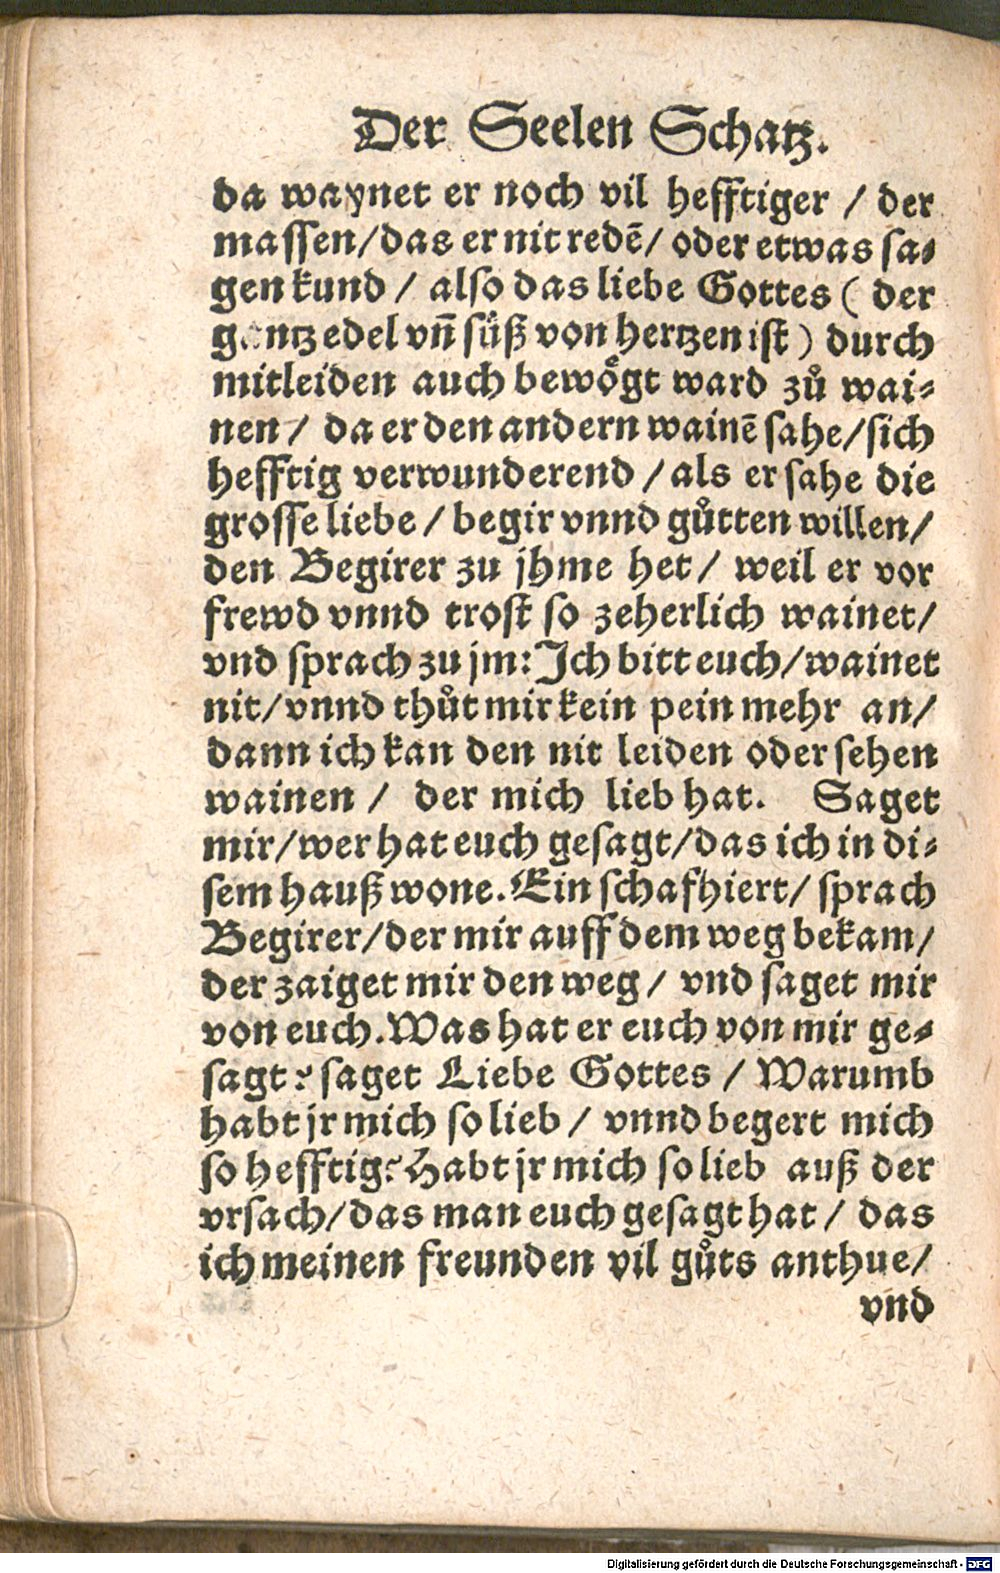 Der Seelen Schatz.
da waynet er noch vil hefftiger / der
massen/das er nit redē/ oder etwas sa⸗
gen kund / also das liebe Gottes ( der
gantz edel vñ süß von hertzen ist ) durch
mitleiden auch bewoͤgt ward zů wai⸗
nen / da er den andern wainē sahe/sich
hefftig verwunderend / als er sahe die
grosse liebe / begir vnnd gůtten willen/
den Begirer zu jhme het / weil er vor
frewd vnnd trost so zeherlich wainet/
vnd sprach zu jm: Ich bitt euch/wainet
nit/vnnd thůt mir kein pein mehr an/
dann ich kan den nit leiden oder sehen
wainen / der mich lieb hat. Saget
mir/wer hat euch gesagt/das ich in di⸗
sem hauß wone. Ein schafhiert/ sprach
Begirer/der mir auff dem weg bekam/
der zaiget mir den weg / vnd saget mir
von euch. Was hat er euch von mir ge⸗
sagt? saget Liebe Gottes / Warumb
habt jr mich so lieb / vnnd begert mich
so hefftig? Habt jr mich so lieb auß der
vrsach/das man euch gesagt hat / das
ich meinen freunden vil gůts anthue/
vnd
Digitalisierung gefördert durch die Deutsche Forschungsgemeinschaft - DFG